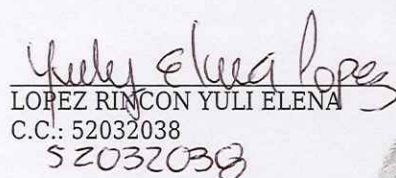 Yuly Elena Lopez
LOPEZ RINCON YULI ELENA
C.C.: 52032038
52032038